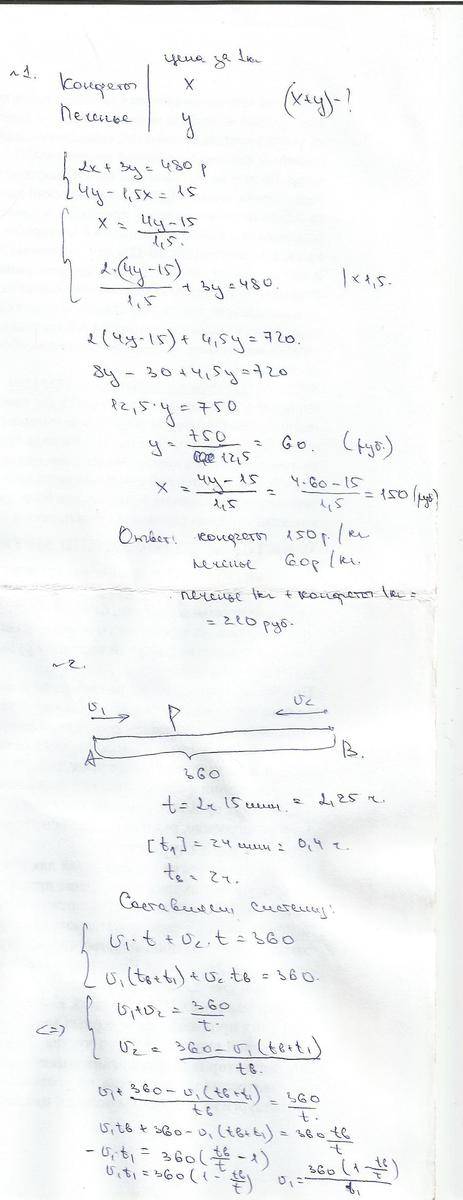 цена за 1кг
№1. Конфеты | x (x+y)-?
Печенье | y
2x + 3y = 480 р
4y - 1,5x = 15
x = (4y-15)/1,5.
2·(4y-15)/1,5 + 3y = 480. |×1,5.
2(4y-15) + 4,5y = 720.
8y - 30 + 4,5y = 720
12,5·y = 750
y = 750/12,5 = 60. (руб.)
x = (4y-15)/1,5 = (4·60-15)/1,5 = 150 (руб)
Ответ: конфеты 150р./кг
печенье 60р/кг.
печенье 1кг + конфеты 1кг =
= 220 руб.
№2.
υ1 P υ2
A B.
360
t = 2ч 15 мин. = 2,25 ч.
[t1] = 24 мин = 0,4 ч.
tв = 2ч.
Составляем систему:
υ1·t + υ2·t = 360
υ1(tв+t1) + υ2·tв = 360.
<=> υ1+υ2 = 360/t.
υ2 = (360 - υ1(tв+t1))/tв.
υ1 + (360 - υ1(tв+t1))/tв = 360/t.
υ1tв + 360 - υ1(tв+t1) = 360 tв/t
-υ1·t1 = 360(tв/t - 1)
υ1t1 = 360(1 - tв/t) υ1 = 360(1 - tв/t)/t1